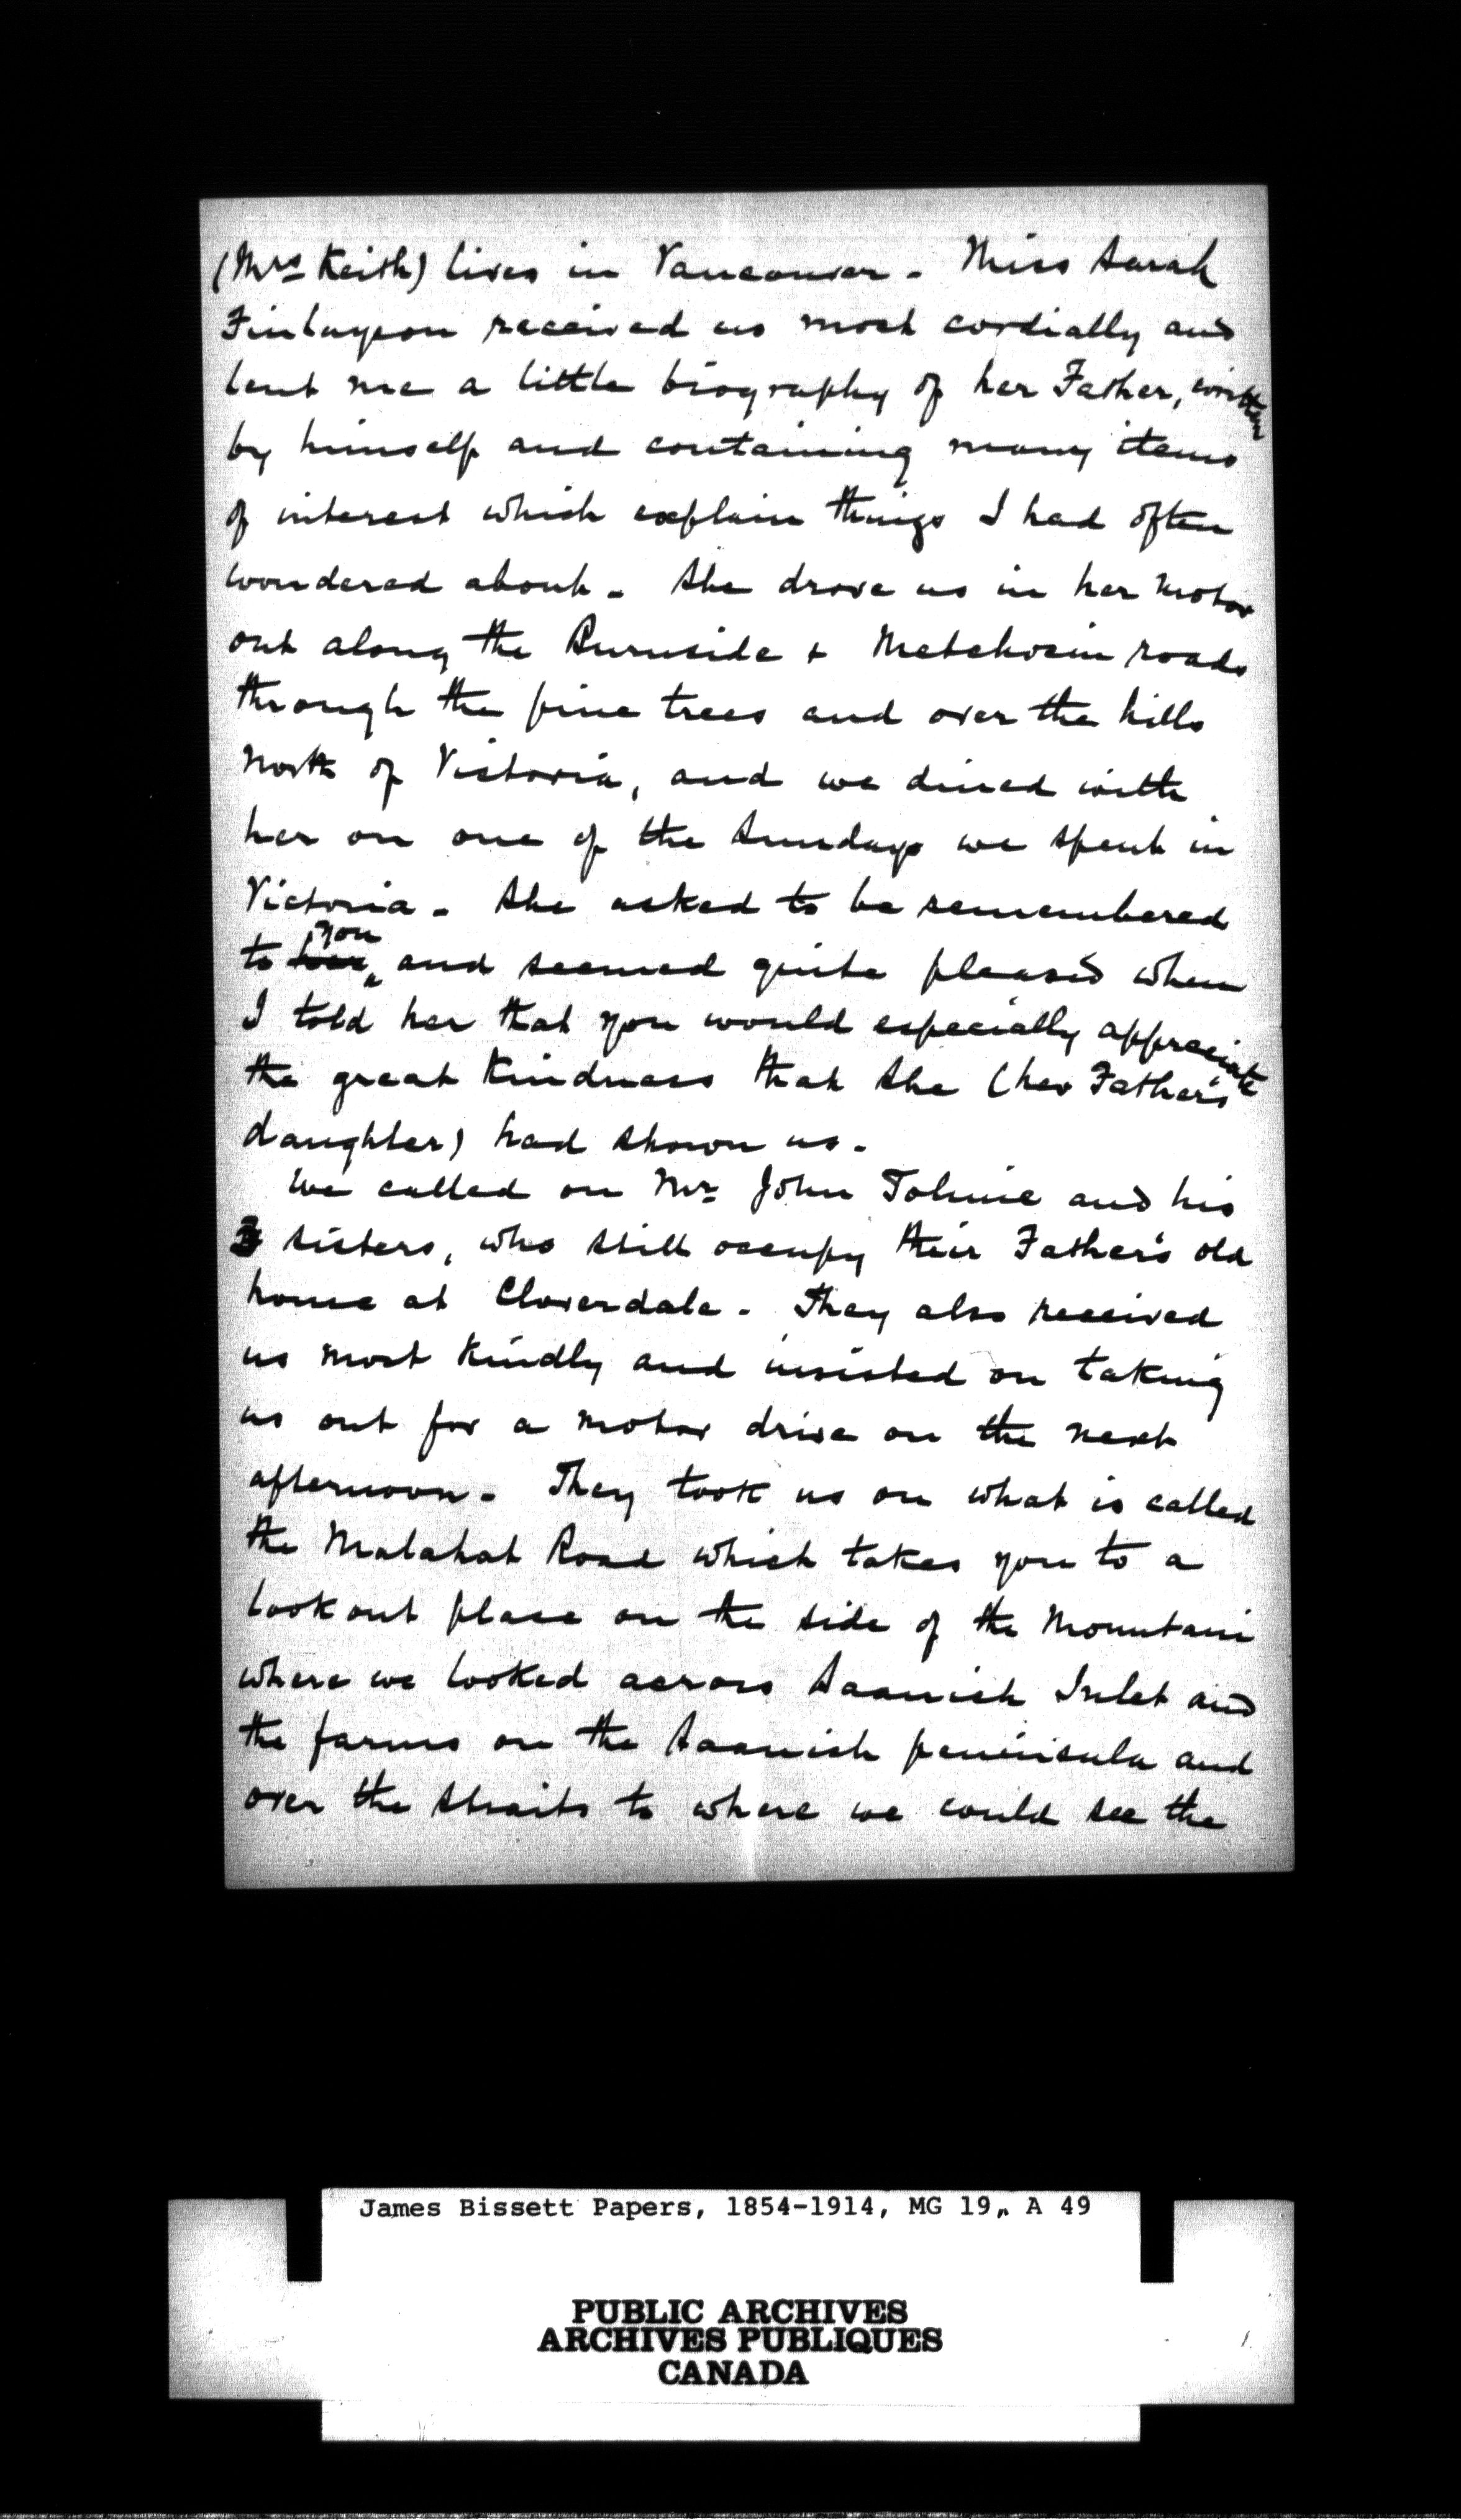 (Mrs Keith) lives in Vancouver - Miss Sarah
Finlayson received us most cordially and
lent me a little biography of her Father, written
by himself and containing many items
of interest which explain things I had often
wondered about - She drove us in her motor
out along the Burnside + Metchosin roads
through the pine trees and over the hills
north of Victoria, and we dined with
her on one of the Sundays we spent in
Victoria - She asked to be remembered
to her you and seemed quite pleased when
I told her that you would especially appreciate
the great kindness that she (her Father's
daughter) had shown us -
We called on Mr John Tolmie and his
3 sisters, who still occupy their Father's old
home at Cloverdale - They also received
us most kindly and insisted on taking
us out for a motor drive on the next
afternoon - They took us on what is called
the Malahat Road which takes you to a
lookout place on the side of the mountain
where we looked across Saanich Inlet and
the farms on the Saanich peninsula and
over the Straits to where we could see the
James Bissett Papers, 1854-1914, MG 19, A 49
PUBLIC ARCHIVES
ARCHIVES PUBLIQUES
CANADA